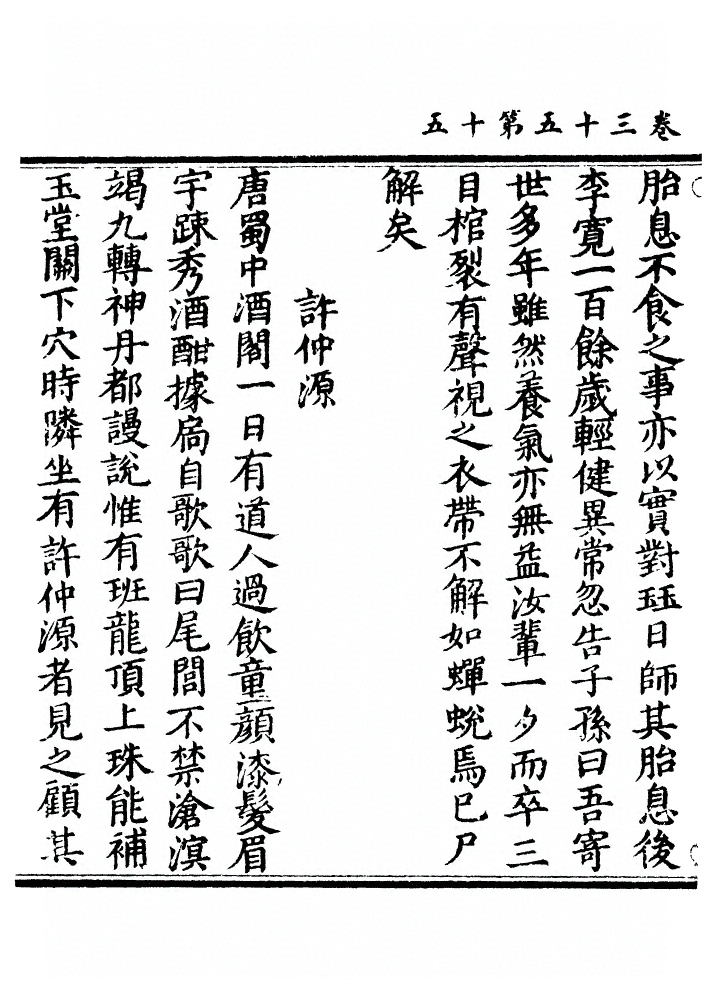 卷三十五第十五
胎息不食之事亦以實對珏日師其胎息後
李寬一百餘歲輕健異常忽告子孫曰吾寄
世多年雖然養氣亦無益汝輩一夕而卒三
日棺裂有聲視之衣帶不解如蟬蛻焉已尸
解矣
許仲源
唐蜀中酒閣一日有道人過飲童顏漆髮眉
宇踈秀酒酣據扃自歌歌曰尾閭不禁滄溟
竭九轉神丹都謾說惟有班龍頂上珠能補
玉堂關下穴時隣坐有許仲源者見之顧其